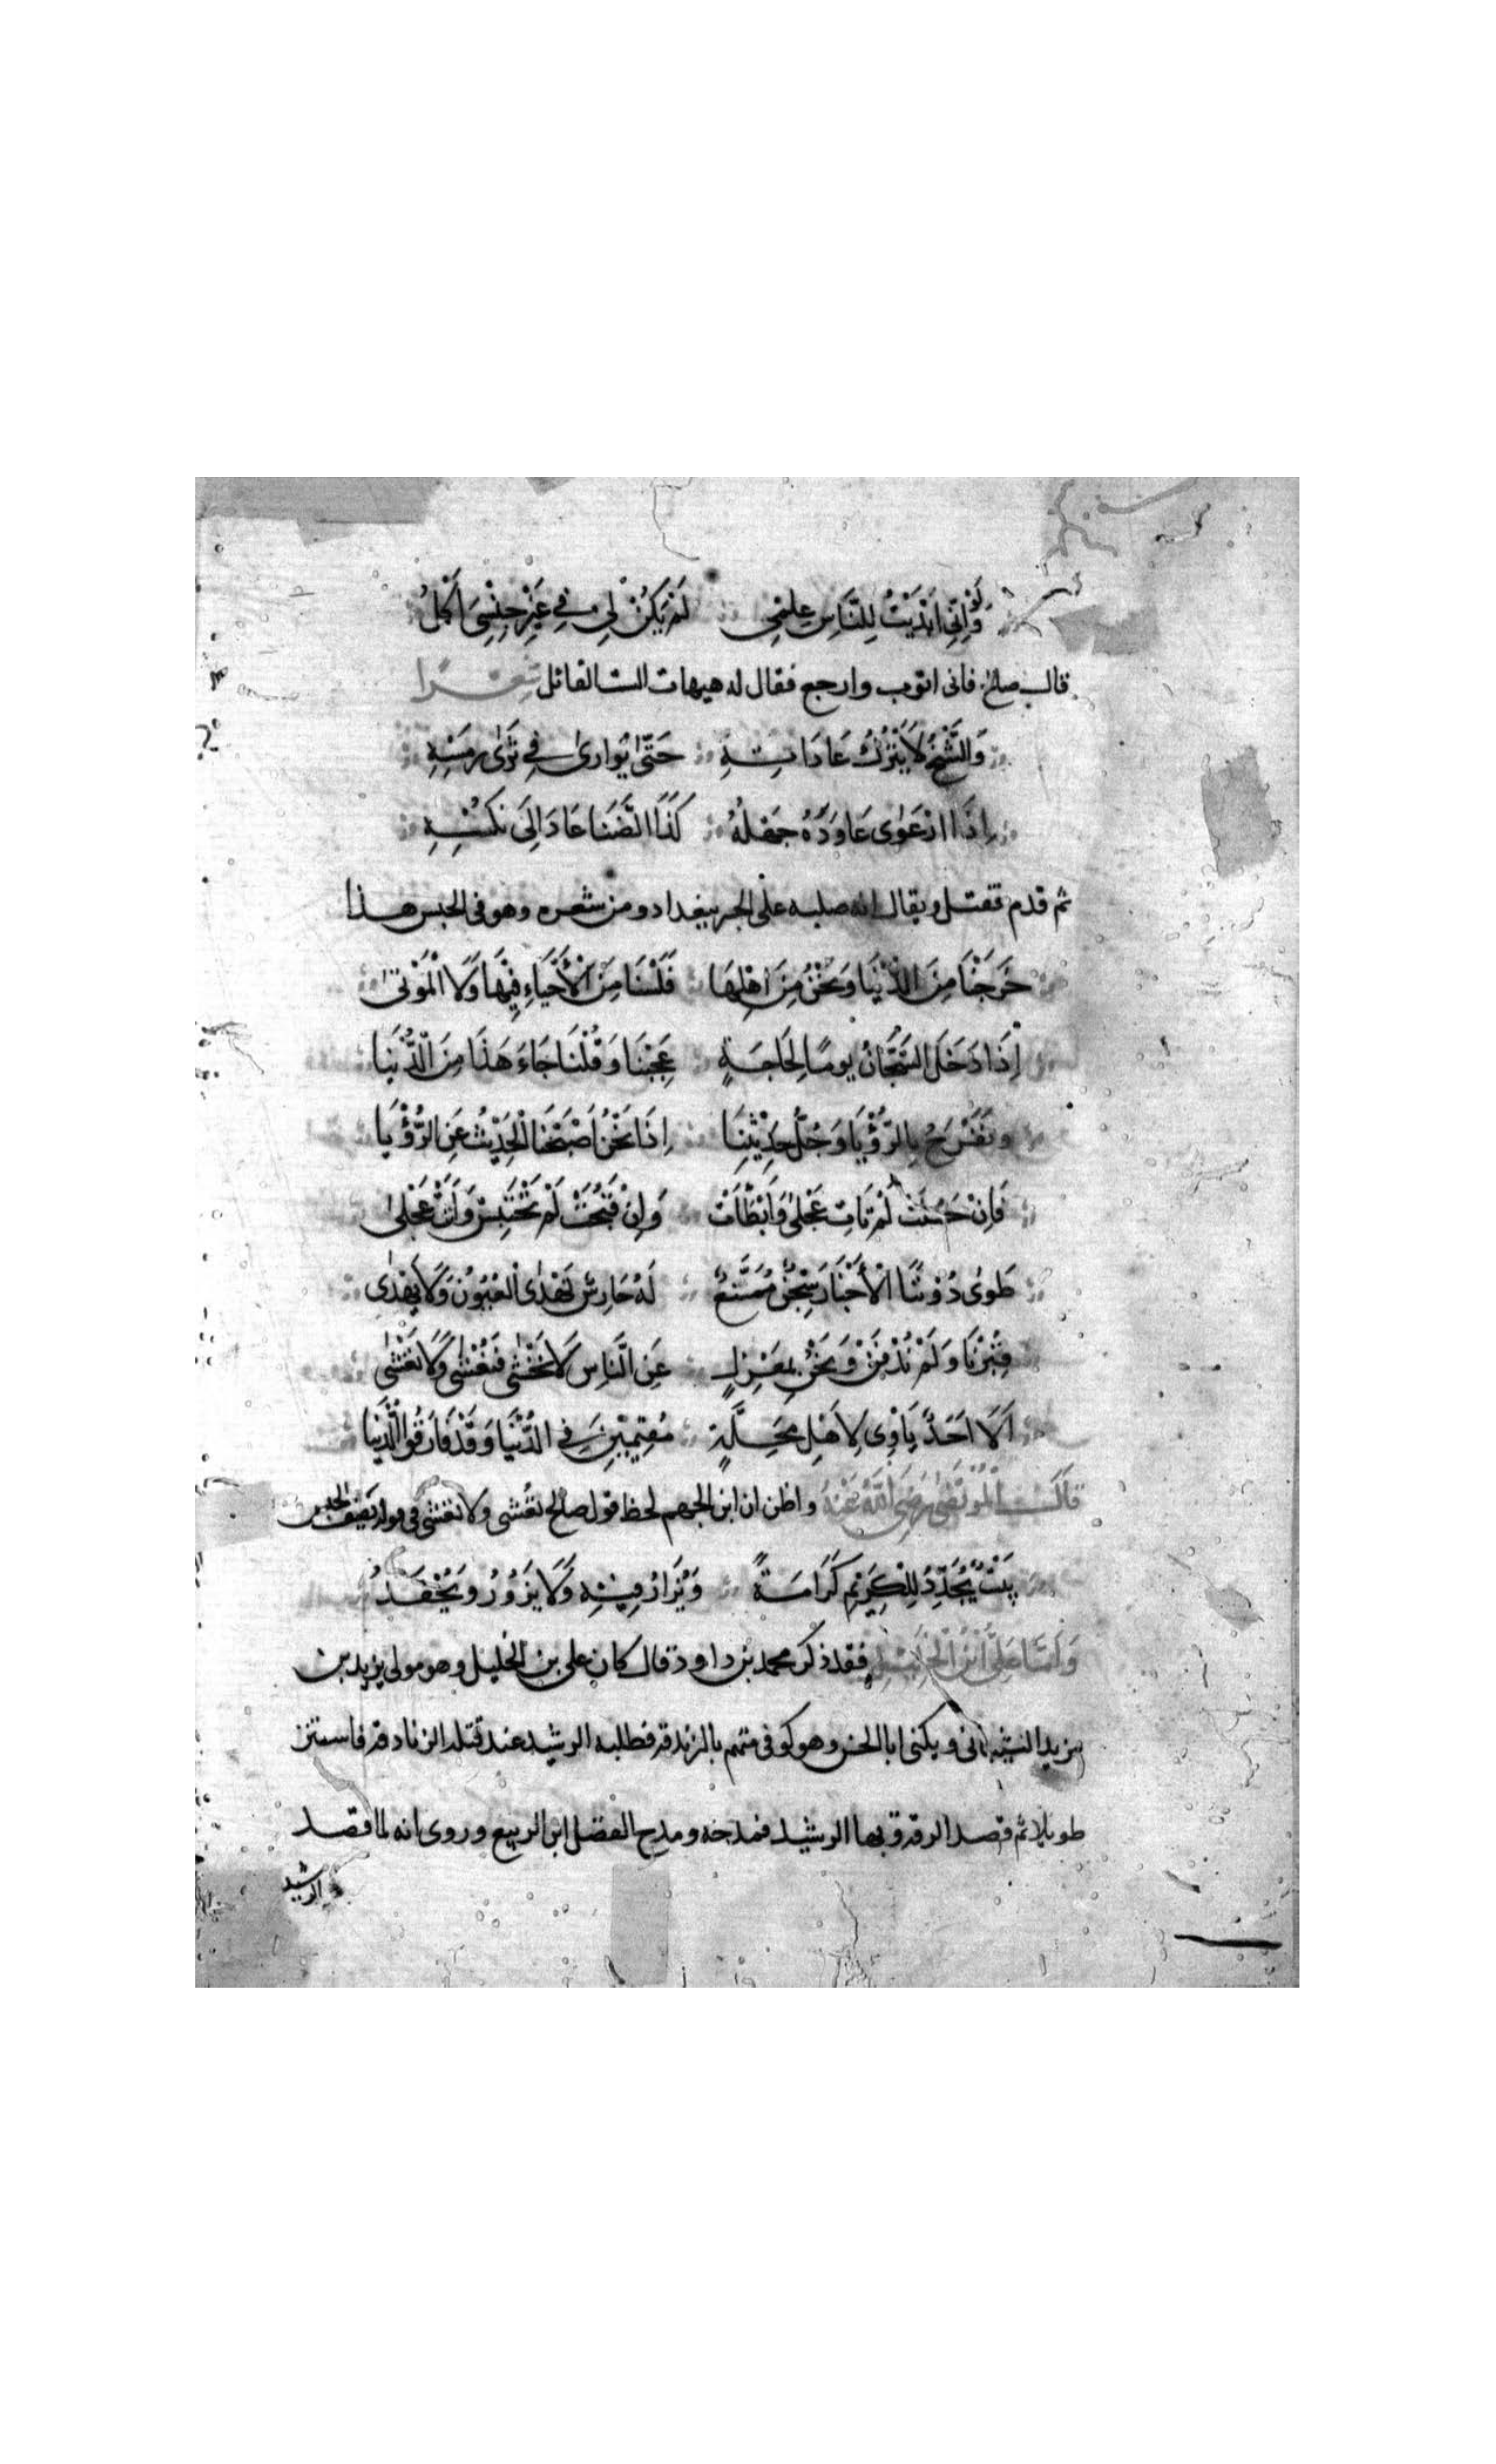 وَلَوْ اَنِّي اَبْدَيْتُ لِلنَّاسِ عِلْمِي لَمْ يَكُنْ لِي فِي غَيْرِ حَبْسِيَ اَكْلُ
قال صالح فانى اتوب وارجع فقال له هيهات الست القائل شعرًا
وَالشَّيْخُ لَا يَتْرُكُ عَادَاتِهِ حَتّٰى يُوارىٰ فِي ثَرٰى رَمْسِهِ
اِذَا ارْعَوٰى عَاوَدَهُ جَهْلُهُ كَذَا الضَّنَا عَادَ اِلَى نُكْسِهِ
ثم قدم فقتل ويقال انه صلبه على الجسر ببغداد ومن شعره وهو فى الحبس هذا
خَرَجْنَا مِنَ الدُّنْيَا وَنَحْنُ مِنَ اهْلِهَا فَلَسْنَا مِنَ الْأَحْيَاءِ فِيْهَا وَلَا الْمَوْتىٰ
اِذَا دَخَلَ السَّجَّانُ يومًا لِحَاجَةٍ عَجِبْنَا وَقُلْنَا جَاءَ هَذَا مِنَ الدُّنْيَا
ونَفْرَحُ بِالرُّؤْيَا وَجُلُّ حَدِيْثِنَا اِذَا نَحْنُ اَصْبَحْنَا الْحَدِيْثُ عَنِ الرُّؤْيَا
فَاِنْ حَسُنَتْ لَمْ تَاتِ عَجْلىٰ وَاَبْطَأَتْ وَاِنْ قَبُحَتْ لَمْ تَحْتَبِسْ وَاَتَتْ عَجْلىٰ
طَوىٰ دُوْنَنَا الْأَخْبَارَ سِجْنٌ مُمَنَّعٌ لَهُ حَارِسٌ تَهْدٰى الْعُيُوْنُ وَلَا يَهْدٰى
قُبِرْنَا وَلَمْ نُدْفَنْ وَنَحْنُ بِمَعْزِلٍ عَنِ النَّاسِ لَا نَخْشٰى فَنُغْشٰى وَلَا نَغْشٰى
اَلَا اَحَدٌ يَاْوِى لِاَهْلِ مَحَلَّةٍ مُقِيْمِيْنَ فِي الدُّنْيَا وَقَدْ فَارَقُوا الدُّنْيَا
قَالَ الْمُرْتَضٰى رَضِيَ اللّٰهُ عَنْهُ واظن ان ابن الجهم لحظ قول صالح نُغشى ولا نغشى فى قوله يصف الحبس
بَيْتٌ يُجَدِّدُ لِلْكَرِيْمِ كَرَامَةً وَيُزَارُ فِيْهِ وَلَا يَزُوْرُ وَيُحْفَدُ
وَاَمَّا عَلِيُّ ابْنُ الْخَلِيْلِ فقد ذكر محمد بن داود قال كان على بن الخليل وهو مولى يزيد بن
مزيد الشيبانى ويكنى ابا الحسن وهو كوفى متهم بالزندقة فطلبه الرشيد عند قتله الزنادقة فاستتر
طويلا ثم قصد الرقة وبها الرشيد فمدحه ومدح الفضل ابن الربيع وروى انه لما قصد
الرشيد